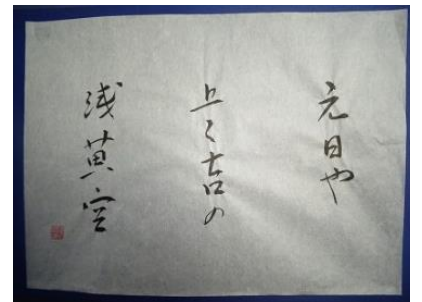 元日や
上々吉の
浅黄空